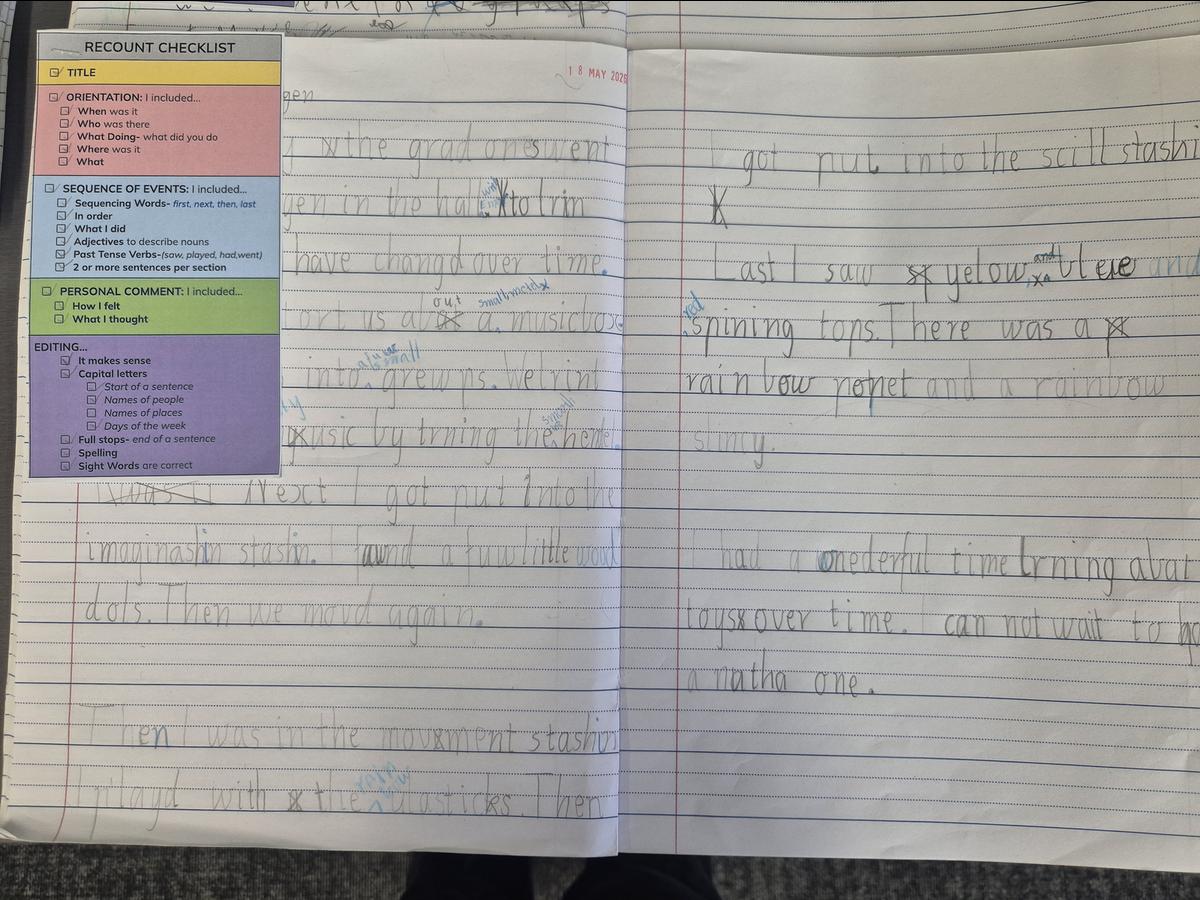 RECOUNT CHECKLIST
TITLE
ORIENTATION: I included...
When was it
Who was there
What Doing- what did you do
Where was it
What
SEQUENCE OF EVENTS: I included...
Sequencing Words- first, next, then, last
In order
What I did
Adjectives to describe nouns
Past Tense Verbs-(saw, played, had,went)
2 or more sentences per section
PERSONAL COMMENT: I included...
How I felt
What I thought
EDITING...
It makes sense
Capital letters
Start of a sentence
Names of people
Names of places
Days of the week
Full stops- end of a sentence
Spelling
Sight Words are correct
18 MAY 2026
gen
the grad ones went
gen in the hall to lrin
have changd over time.
tort us a out a. music box
into grew ps. We lrint
music by trning the
Next I got put into the
imaginashin stashin. I fawnd a fuw little woud
dols. Then we movd again.
Then I was in the movment stashin
I playd with the rain bow blasticks. Then
I got put into the scill stashi
Last I saw yelow and blew and
red
spining tops. There was a
rain bow popet and a rainbow
slincy.
I had a onederful time lrning abat
toys over time. I can not wait to go
a natha one.